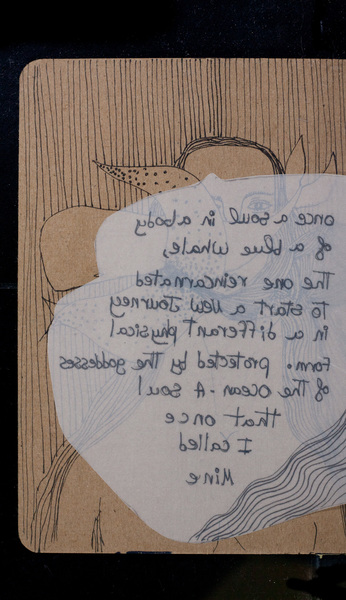 once a soul in a body
of a blue whale,
The one reincarnated
To start a new Journey
in a differant physical
Form. protected by The goddesses
of The ocean - A soul
That once
I called
Mine